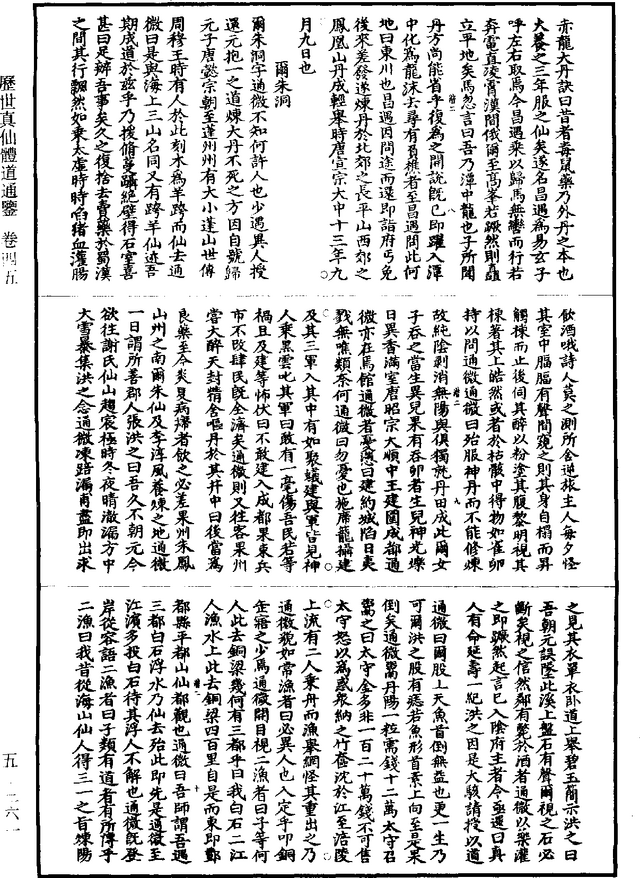 赤龍大丹訣曰昔者毒鼠藥乃外丹之本也
大養之三年服之仙矣遂名昌遇為易玄子
呼左右取馬令昌遇乘以歸馬無轡而行若
奔電直凌霄漢間俄爾至高峯若蹶然則矗
立平地矣馬忽言曰吾乃潭中龍也子所聞
丹方尚能省乎復為之開說既已即躍入潭
中化為龍沫去尋有負樵者至昌遇問此何
地曰東川也昌遇因問途而還即詣府丐免
後來差發遂煉丹於北郊之長平山西郊之
鳳凰山丹成輕舉時唐宣宗大中十三年九
月九日也
爾朱洞
爾朱洞字通微不知何許人也少遇異人授
還元抱一之道煉大丹不死之方因自號歸
元子唐懿宗朝至蓬州州有大小蓬山世傳
周穆王時有人於此刻木為羊跨而仙去通
微曰是與海上三山名同又有跨羊仙迹吾
期成道於茲乎乃援脩蔓躡絕壁得石室喜
甚曰足辦吾事矣久之復捨去賣藥於蜀漢
之間其行飄然如乘太虛時時啗猪血灌腸
飲酒哦詩人莫之測所舍逆旅主人每夕怪
其室中䐧䐧有聲間窺之則其身自榻而昇
觸棟而止後伺其醉以粉塗其腹黎明視其
棟著其上皓然或者於枯骸中得物如雀卵
持以問通微通微曰殆服神丹而不能修煉
故純陰剥消無陽與俱獨就丹田成此爾女
子吞之當生異兒果有吞卵者生兒神光爍
日異香滿室唐昭宗大順中王建圍成都通
微亦在焉館通微者憂懣曰建約城陷日夷
戮無噍類柰何通微曰勿憂也施席籠攝建
及其三軍入其中有如聚蟻建與軍皆見神
人乘黑雲叱其軍曰敢有一毫傷吾民若等
禍且及建等怖伏曰不敢建入成都果束兵
市不改肆民既全濟矣通微則又往客果州
當大醉天封精舍嘔丹於其井中曰後當為
良藥至今炎夏病熱者飲之必差果州朱鳳
山州之南爾朱仙及李淳風養煉之地通微
一日謂所善郡人張洪之曰吾久不朝元今
欲往謝氏仙山趨衮極時冬夜晴澈漏方中
大雪暴集洪之念通微凍踣漏甫盡即出求
之見其衣單衣卧道上舉碧玉簡示洪之曰
吾朝元誤墜此溪上盤石有聲爾視之石必
斷矣視之信然鄰有斃於酒者通微以藥灌
之即蹶然起言已入陰府主者令亟還曰真
人有命延壽一紀洪之因是大駭請授以道
通微曰爾股上天魚首倒無益也更一生乃
可爾洪之股有痣若魚形首素上向至是果
倒矣通微鬻丹陽一粒需錢十二萬太守召
鬻之曰太守金多非一百二十萬錢不可售
太守怒以為惑衆納之竹籠沈於江至涪陵
上流有二人乘舟而漁舉網怪其重出之乃
通微貌如常漁者曰必異人也入定乎叩銅
缶寤之少焉通微開目視二漁者曰子等何
人此去銅梁幾何有三都乎曰我白石二江
人漁水上此去銅梁四百里自是而東即酆
都縣平都山仙都觀也通微曰吾師謂吾遇
三都白石浮水乃仙去殆此即先是通微至
江濱多投白石待其浮人不解也通微既登
岸從容語二漁者曰子類有道者有所傳乎
二漁曰我昔從海山仙人得三一之旨煉陽
歷世真仙體道通鑑 卷四五
五